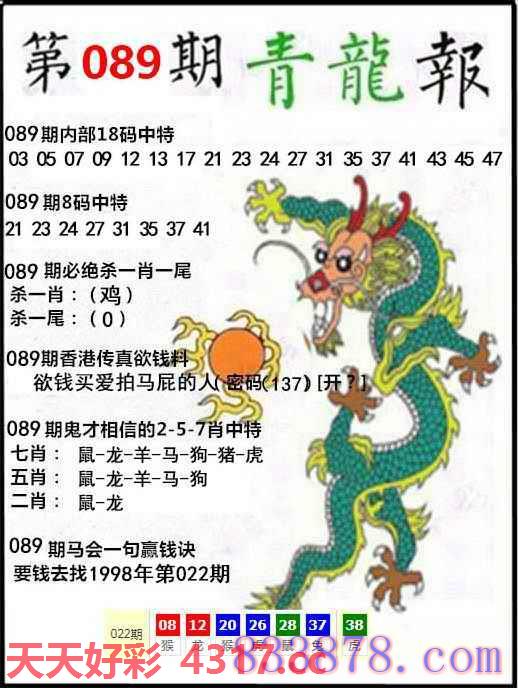 第089期青龍報
089期内部18码中特
03 05 07 09 12 13 17 21 23 24 27 31 35 37 41 43 45 47
089期8码中特
21 23 24 27 31 35 37 41
089 期必绝杀一肖一尾
杀一肖：（鸡）
杀一尾：（0）
089期香港传真欲钱料
欲钱买爱拍马屁的人(密码(137)) [开？]
089期鬼才相信的2-5-7肖中特
七肖： 鼠-龙-羊-马-狗-猪-虎
五肖： 鼠-龙-羊-马-狗
二肖： 鼠-龙
089 期马会一句赢钱诀
要钱去找1998年第022期
022期 08 12 20 26 28 37 38
猴 龙 猴 虎 鼠 兔 虎
天天好彩 4317.cc
838878.com